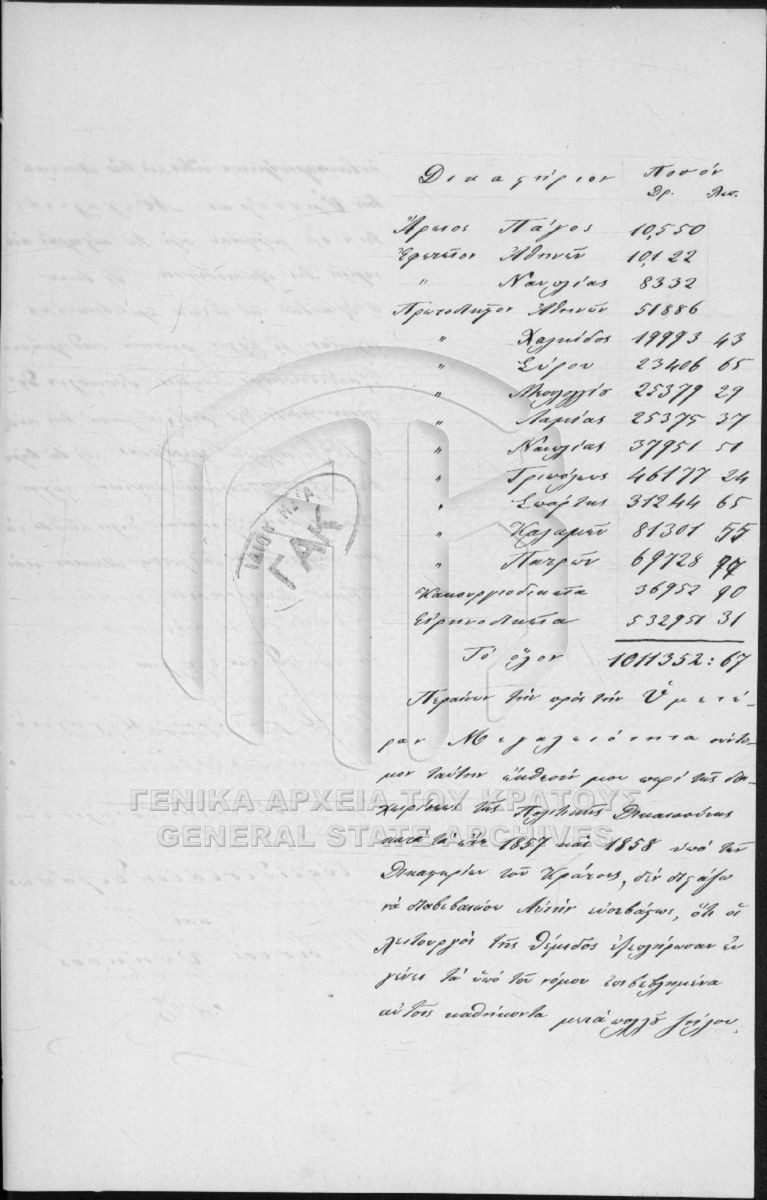 Δικαστήριον Ποσὸν
Δρ. Λεπ.
Ἄρειος Πάγος 10,550
Ἐφετεῖον Ἀθηνῶν 10,122
" Ναυπλίας 8332
Πρωτοδικεῖον Ἀθηνῶν 51886
" Χαλκίδος 19993 43
" Σύρου 23406 65
" Μεσολλγίου 25379 29
" Λαμίας 25375 37
" Ναυπλίας 37951 51
" Τριπόλεως 46177 24
" Σπάρτης 31244 65
" Καλαμῶν 81301 55
" Πατρῶν 69728 97
Κακουργιοδικεῖα 36952 90
Εἰρηνοδικεῖα 532951 31
Τὸ ὅλον 1011352:67
Περαίνων τὴν πρὸς τὴν Ὑμετέ-
ραν Μεγαλειότητα σύντο-
μον ταύτην ἔκθεσίν μου περὶ τῆς δια-
χειρίσεως τῆς Πολιτικῆς Δικαιοσύνης
κατὰ τὰ ἔτη 1857 καὶ 1858 ὑπὸ τῶν
Δικαστηρίων τοῦ Κράτους, δὲν διστάζω
νὰ διαβεβαιώσω Αὐτὴν εὐσεβάστως, ὅτι οἱ
λειτουργοὶ τῆς Θέμιδος ἐξεπλήρωσαν ἐν
γένει τὰ ὑπὸ τοῦ νόμου ἐπιβεβλημένα
αὐτοῖς καθήκοντα μετὰ πολλοῦ ζήλου,
ΓΑΚ
ΓΕΝΙΚΑ ΑΡΧΕΙΑ ΤΟΥ ΚΡΑΤΟΥΣ
GENERAL STATE ARCHIVES